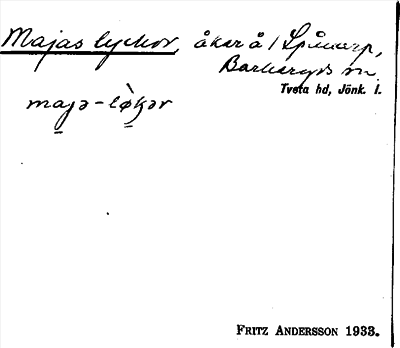 Majas lyckor, åkar å / Spånarp,
Barkeryds sn.
Tveta hd, Jönk. l.
majə-løkər
FRITZ ANDERSSON 1933.